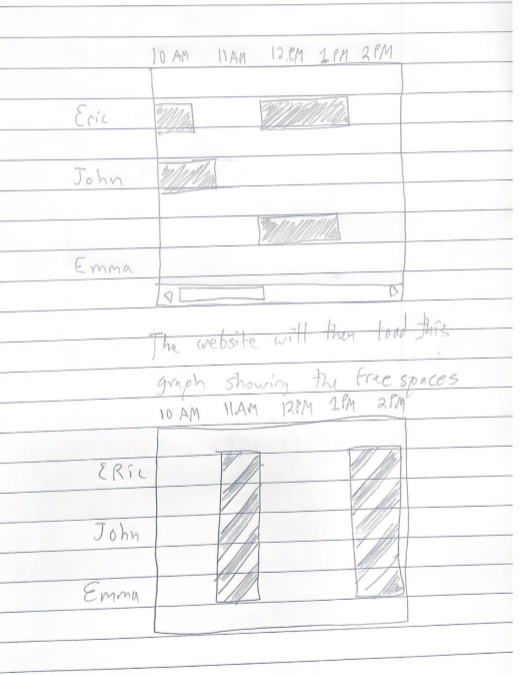 10 AM 11 AM 12 PM 1 PM 2 PM
Eric
John
Emma
The website will then load this
graph showing the free spaces
10 AM 11 AM 12 PM 1 PM 2 PM
ERic
John
Emma